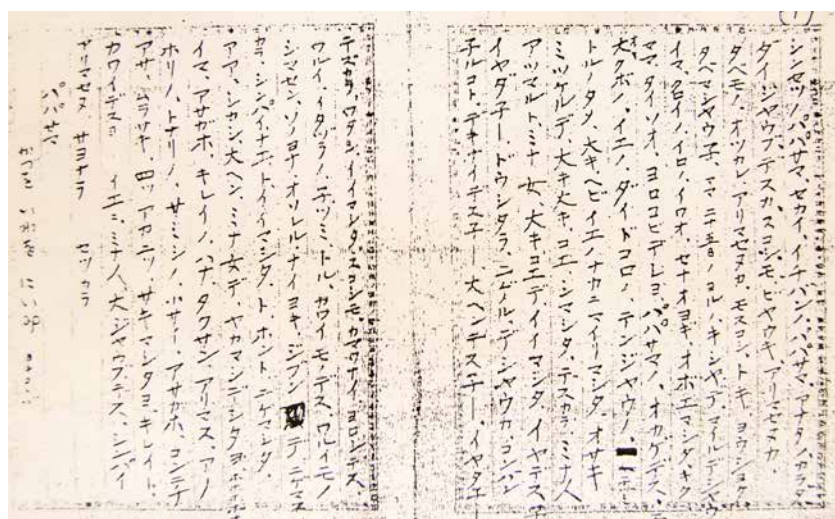 (1)
シンセツノパパサマ、セカイ、イチバンノ、パパサマ、アナタノ、カラダ、
ダイジャウブデスカ、スコシモ、ビャウキ、アリマセヌカ、
タベモノ、オツカレ、アリマセヌカ、モスコシ、トキ、ヨウジョク
タベマシャウ子、ママ二十五日ノヨル、ノキシヤデ、マイルデシャウ
イマ、クロイノ、イロノ、イワオ、セナオヨギ、オボエマシタ、キク
ママ、タイソオ、ヨロコビデショ、パパサマノ、オカゲデス、
大クボノ、イエノ、ダイドコロノ、テンジャウノ、
トルノタメ、大キヘビイエノナカニマイリマシタ、オサキ
ミツケルデ、大キ大キ、コエ、シマシタ、デスカラ、ミナ人
アツマルトミナ 女、大キコエデ、イイマシタ、イヤデス子
イヤダ子ードウシタラ、ニゲルデシャウカ、コンバン
子ルコト、デキナイデス子ー、大ヘンデス子ー、イヤダ子
デスカラ、ワタシ、イイマシタ、スコシモ、カマワナイ、ヨロシデス、
ワルイ、イタヅラノ、子ヅミ、トル、カワイモノデス、ワルイモノ
シマセン、ソノヨナ、オソレル、ナイヨキ、ジブン デニゲマス
カラ、シンパイナエ、トイイマシタ、ト、ホントニゲマシタ、
アア、シカシ、大ヘン、ミナ女デ、ヤカマシデシタヨ、ホホホホ
イマ、アサガホ、キレイノ、ハナタクサン、アリマス、アノ
ホリノ、トナリノ、サミシノ、小サイ、アサガホ、コンナ
アサ、ムラサキ、四ツアカニツ、サキマシタヨ、キレイト、
カワイデスヨ イエニ、ミナ人、大ジャウブデス、シンパイ
アリマセヌ、サヨナラ セツカラ
パパサマ